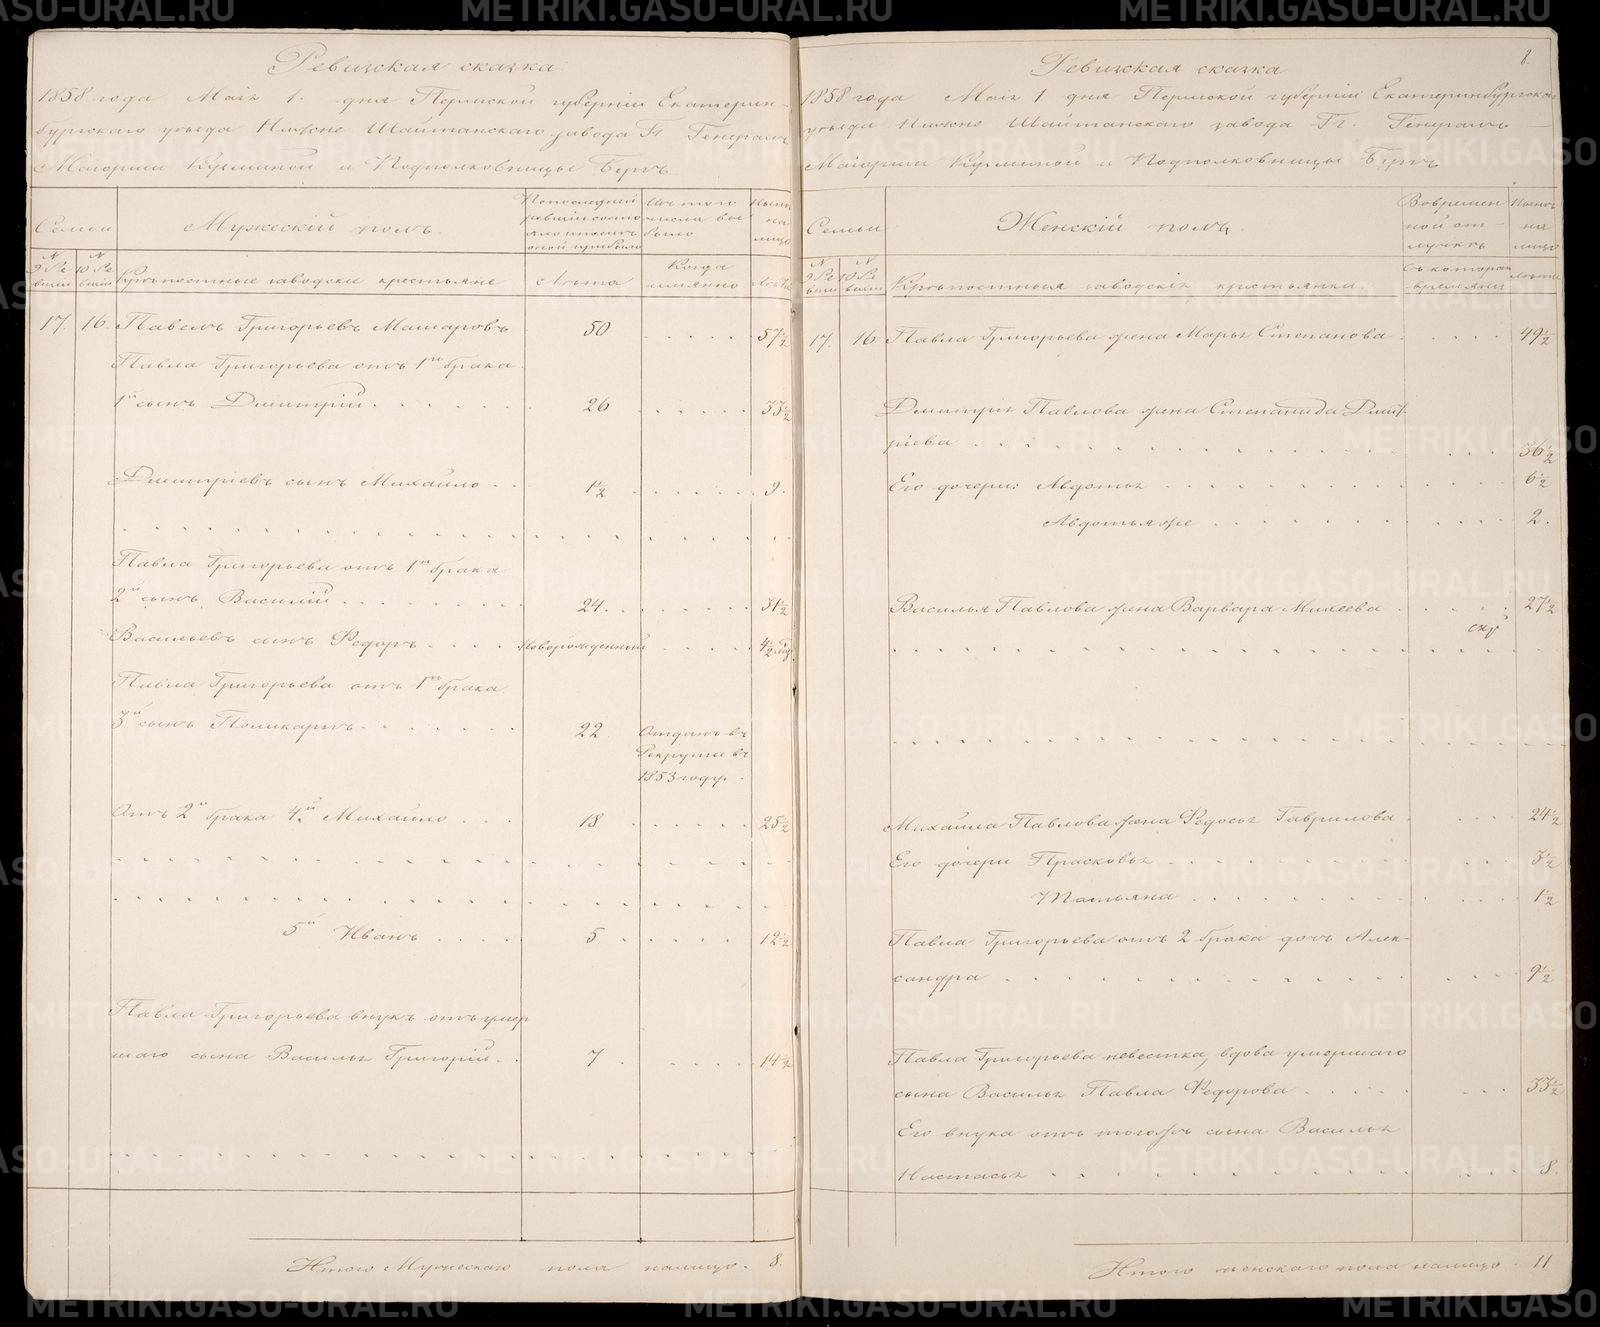 8.
Ревизская сказка
1858 года Маія 1. дня Пермской губерніи Екатерин-
бургскаго уѣзда Нижне Шайтанскаго завода Гг. Генералъ
Маіорши Кузьминой и Подполковницы Бергъ
Семьи
Мужескій полъ.
По последней ревизіи состояло и после оной прибыло
Изъ того числа выбыло
Ныне на лицо
№ 9 Ревизіи
№ 10 Ревизіи
Крѣпостные заводскіе крестьяне
Лѣта
Когда именно
Лѣта
17. 16. Павелъ Григорьевъ Машаровъ 50 57½
Павла Григорьева отъ 1го брака
1й сынъ Дмитрій 26 33½
Дмитріевъ сынъ Михайло 1½ 9.
Павла Григорьева отъ 1го брака
2й сынъ Василій 24. 31½
Васильевъ сынъ Федоръ Новорожденный 4½ мц.
Павла Григорьева отъ 1го брака
3й сынъ Поликарпъ 22 Отданъ въ
Рекруты въ
1853 году.
Отъ 2й брака 4й Михайло 18 25½
5й Иванъ 5 12½
Павла Григорьева внукъ отъ умер
шаго сына Василья Григорій 7 14½
Итого Мужескаго пола налицо 8.
Ревизская сказка
1858 года Маія 1 дня Пермской губерніи Екатеринбургскаго
уѣзда Нижне Шайтанскаго завода Гг. Генералъ
Маіорши Кузьминой и Подполковницы Бергъ
Семьи
Женскій полъ.
Во временной отлучкѣ
Ныне на лицо
№ 9 Ревизіи
№ 10 Ревизіи
Крѣпостныя заводскія крестьянки
Съ котораго времяни
Лѣта
17. 16 Павла Григорьева жена Марья Степанова 49½
Дмитрія Павлова жена Степанида Дмит-
ріева 36½
Его дочери: Авдотья 6½
Авдотья же 2.
Василья Павлова жена Варвара Михеева 27½
Михайла Павлова жена Федосья Гаврилова 24½
Его дочери Прасковья 3½
Татьяна 1½
Павла Григорьева отъ 2 брака дочь Алек-
сандра 9½
Павла Григорьева невестка, вдова умершаго
сына Василья Павла Федорова 33½
Его внука отъ тогожъ сына Василья
Настасья 8.
Итого женскаго пола налицо 11
METRIKI.GASO-URAL.RU